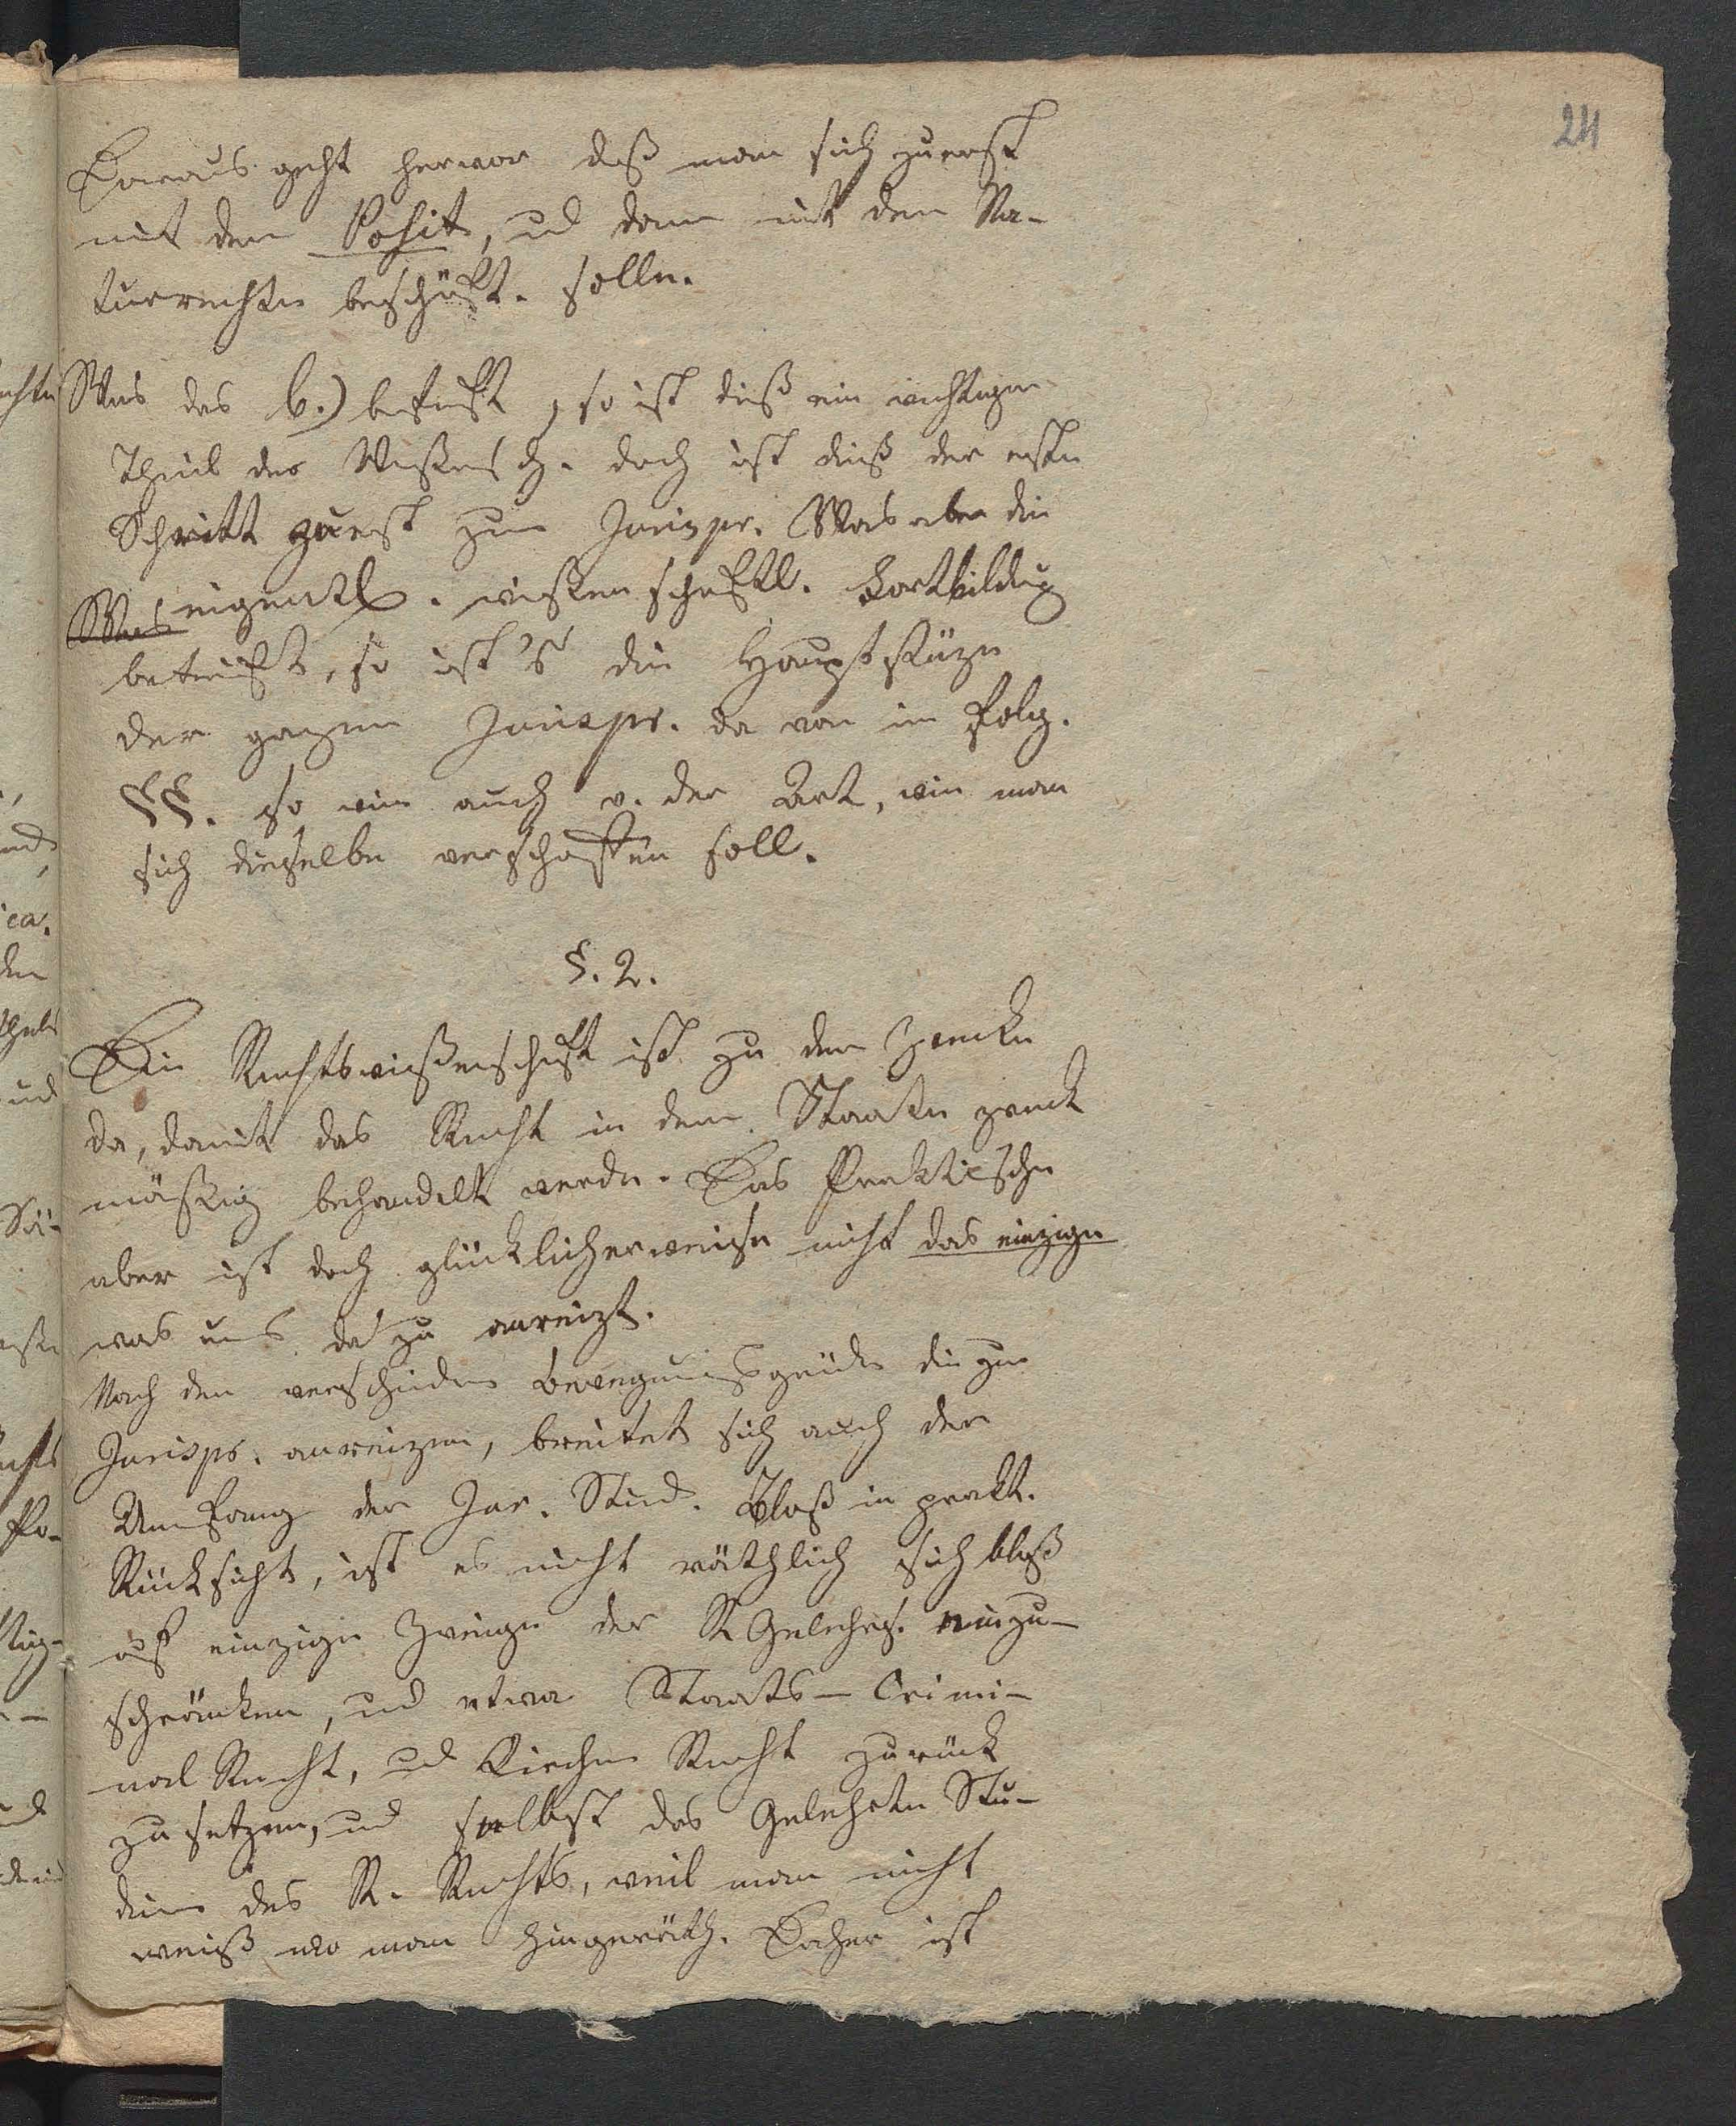 24
Daraus geht hervor daß man sich zuerst
mit dem Posit, ud dann mit dem Na-
turrechte beschäft. solle.
Was das b.) betrift, so ist dieß ein wichtiger
Theil der Wißensch. doch ist dieß der erste
Schritt zuerst zur Jurispr. Was aber die
Was eigentl. wißenschaftl. Fortbildug
betrift, so ist's die Hauptstüze
der ganzen Jurispr. da von im Folg.
§§. so wie auch v. der Art, wie man
sich dieselbe verschaffen soll.
§. 2.
Die Rechtswißenschaft ist zu dem Zwecke
da, damit das Recht in dem Staate zweck
mäßig behandelt werde. Das Praktische
aber ist doch glücklicherweise nicht das einzige
was uns da zu anreizt.
Nach den verschiedn Bewegungsgründn die zur
Jurispr. anreizen, breitet sich auch der
Umfang der Jur. Stud. Bloß in prakt.
Rücksicht, ist es nicht räthlich sich bloß
auf einzige Zweige der R Gelehrs. einzu-
schränken, ud etwa Staats- Crimi-
nal Recht, ud Kirchen Recht zurück
zu setzen, ud selbst das Gelehrte Stu-
dium des R. Rechts, weil man nicht
weiß wo man hingeräth. Daher ist